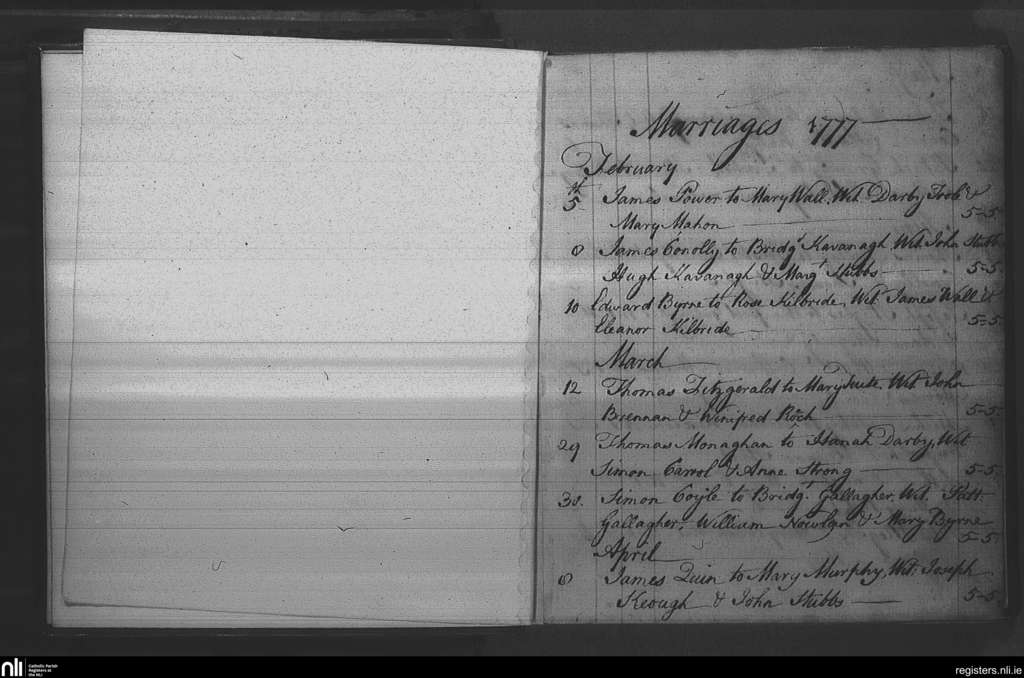 Marriages 1777
February
5 James Power to Mary Wall, Wit. Darby &
Mary Mahon 5-5
8 James Conolly to Bridgt Kavanagh, Wit. John Stubbs
Hugh Kavanagh & Margt Stubbs 5-5.
10 Edward Byrne to Rose Kilbride, Wit. James Wall &
Eleanor Kilbride 5-5.
March
12 Thomas Fitzgerald to Mary Wit. John
Brennan & Winifred Roch 5-5.
29 Thomas Monaghan to Hanah Darby, Wit
Simon Carrol & Anne Strong 5-5.
30. Simon Coyle to Bridgt. Gallagher, Wit. Patt.
Gallagher, William Nowlan & Mary Byrne
5-5.
April
8 James Quin to Mary Murphy, Wit. Joseph
Keough & John Stubbs 5-5.
nli
Catholic Parish
Registers at
the NLI
registers.nli.ie